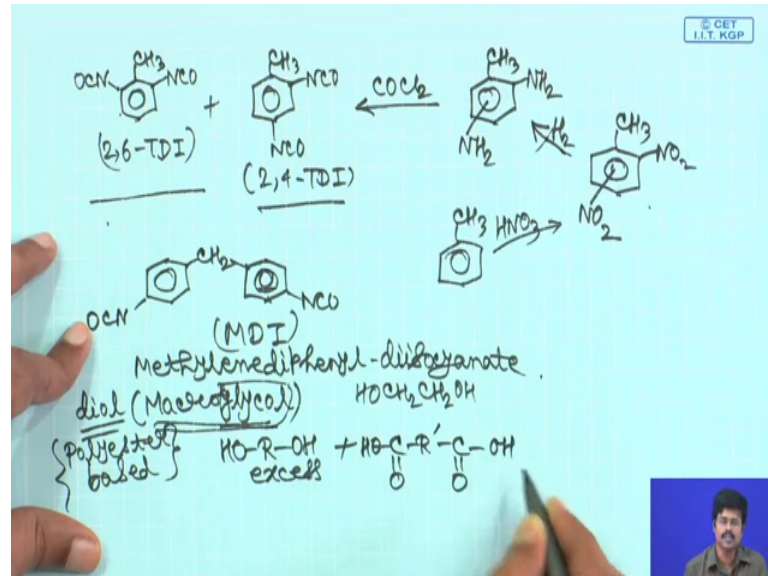 © CET
I.I.T. KGP
CH3
OCN
NCO
(2,6-TDI)
+
CH3
NCO
NCO
(2,4-TDI)
COCl2
CH3
NH2
NH2
H2
CH3
NO2
NO2
CH3
HNO3
CH2
OCN
NCO
(MDI)
Methylenediphenyl-diisocyanate
diol (Macroglycol)
HOCH2CH2OH
{Polyester based}
HO-R-OH + HO-C-R'-C-OH
excess
O
O